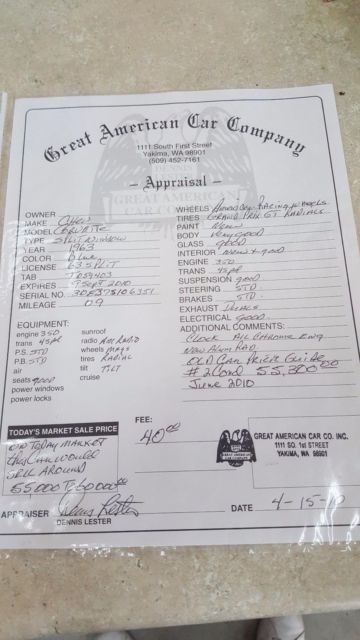 Great American Car Company
1111 South First Street
Yakima, WA 98901
(509) 452-7161
– Appraisal –
OWNER
MAKE Chev
MODEL Corvette
TYPE Split Window
YEAR 1963
COLOR Blue
LICENSE 63 Split
TAB
EXPIRES 9 Sept 2010
SERIAL NO. 30837S106351
MILEAGE 09
WHEELS American Racing Wheels
TIRES Grand Prix GT Radials
PAINT New
BODY Very Good
GLASS Good
INTERIOR New & Good
ENGINE 350
TRANS 4spd
SUSPENSION Good
STEERING STD
BRAKES STD.
EXHAUST
ELECTRICAL Good
ADDITIONAL COMMENTS:
Clock All Chrome Eng
New Alum Rad.
Old Car Price Guide
#2 Cond 55,300.00
June 2010
EQUIPMENT:
engine 350 sunroof
trans 4spd radio AM Radio
P.S. STD wheels Mags
P.B. STD tires Radial
air tilt Tilt
seats Good cruise
power windows
power locks
TODAY'S MARKET SALE PRICE
On Today Market
this Car would
Sell Around
55000 To 60000.00
FEE:
40.00
GREAT AMERICAN CAR CO. INC.
1111 SO. 1st STREET
YAKIMA, WA 98901
APPRAISER Dennis Lester
DENNIS LESTER
DATE 4-15-10